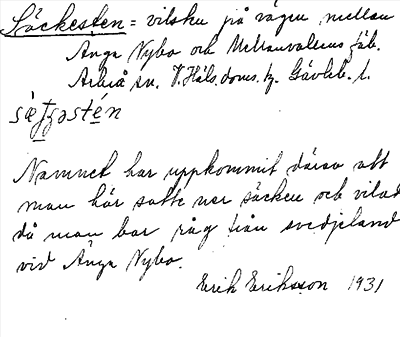 Säckesten = vilsten på vägen mellan
Änga Nybo och Mellanvallens fäb.
Arbrå sn. V. Häls. doms. h. Gävleb. l.
Namnet har uppkommit därav att
man här satte ner säcken och vilade
då man bar råg från svedjeland
vid Änga Nybo.
Erik Eriksson 1931